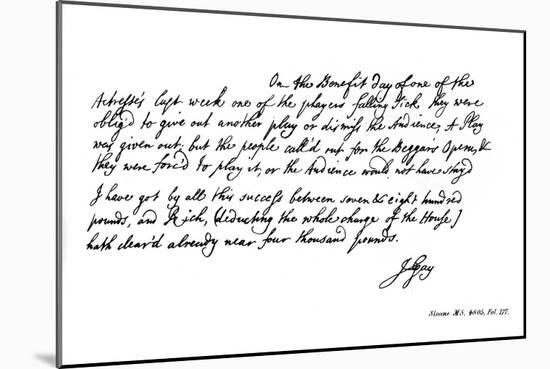 On the Benefit day of one of the
Actresse's last week one of the players falling sick they were
oblig'd to give out another play or dismiss the Audience, A Play
was given out, but the people call'd out for the Beggars Opera, &
they were forc'd to play it, or the Audience would not have stayd
I have got by all this success between seven & eight hundred
pounds, and Rich, (deducting the whole charge of the House)
hath clear'd already near four thousand pounds.
J Gay
Sloane MS. 4805, Fol. 177.